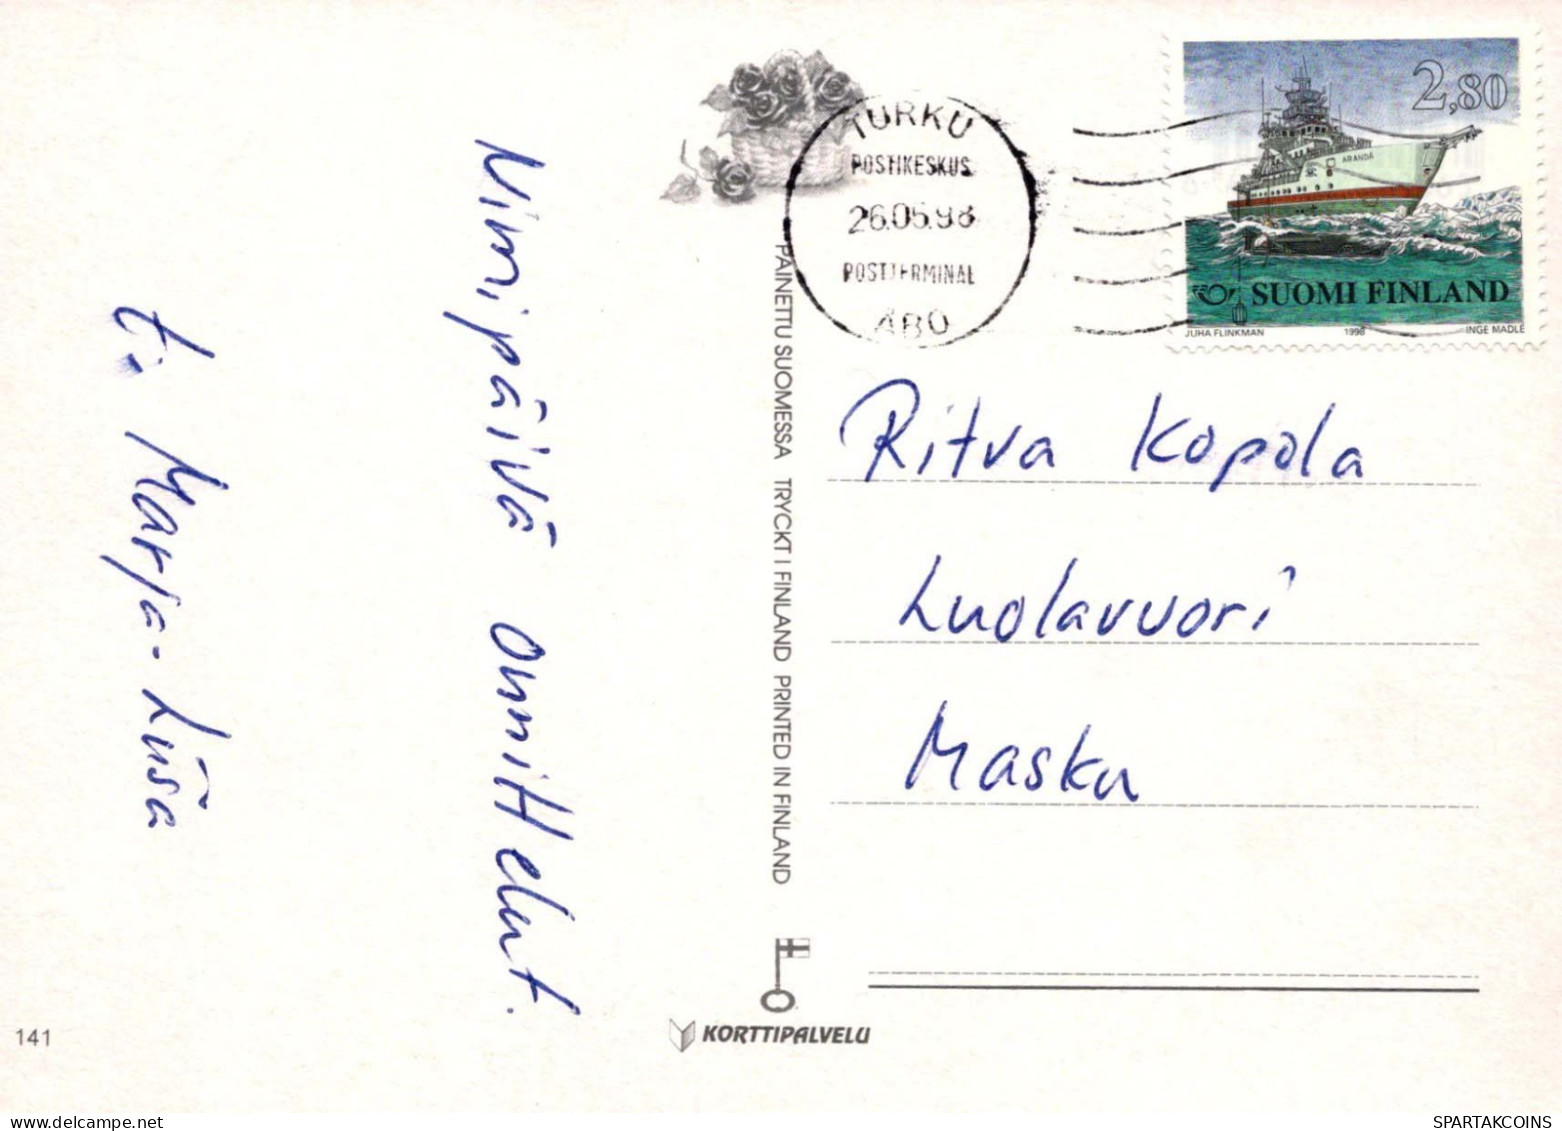 Nimipäivä onnittelut.
t. Marja-Liisa
141
PAINETTU SUOMESSA TRYCKT I FINLAND PRINTED IN FINLAND
KORTTIPALVELU
TURKU
POSTIKESKUS
26.05.98
POSTTERMINAL
ÅBO
2,80
ARANDA
SUOMI FINLAND
JUHA FLINKMAN 1998 INGE MADLÉ
Ritva Kopola
Luolavuori
Masku
SPARTAKCOINS